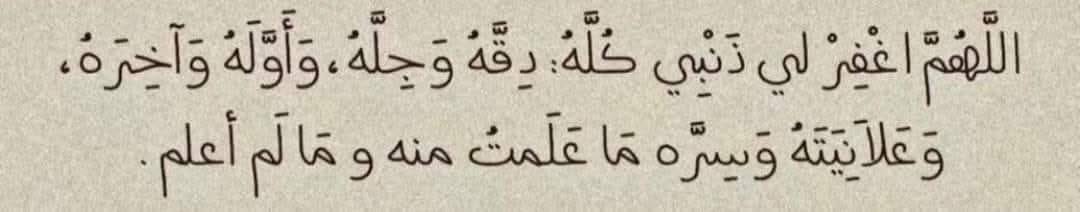 اللَّهُمَّ اغْفِرْ لي ذَنْبِي كُلَّهُ: دِقَّهُ وَجِلَّهُ، وَأَوَّلَهُ وَآخِرَهُ،
وَعَلاَنِيَتَهُ وَسِرَّه مَا عَلَمتُ منه و مَا لَم أعلم.